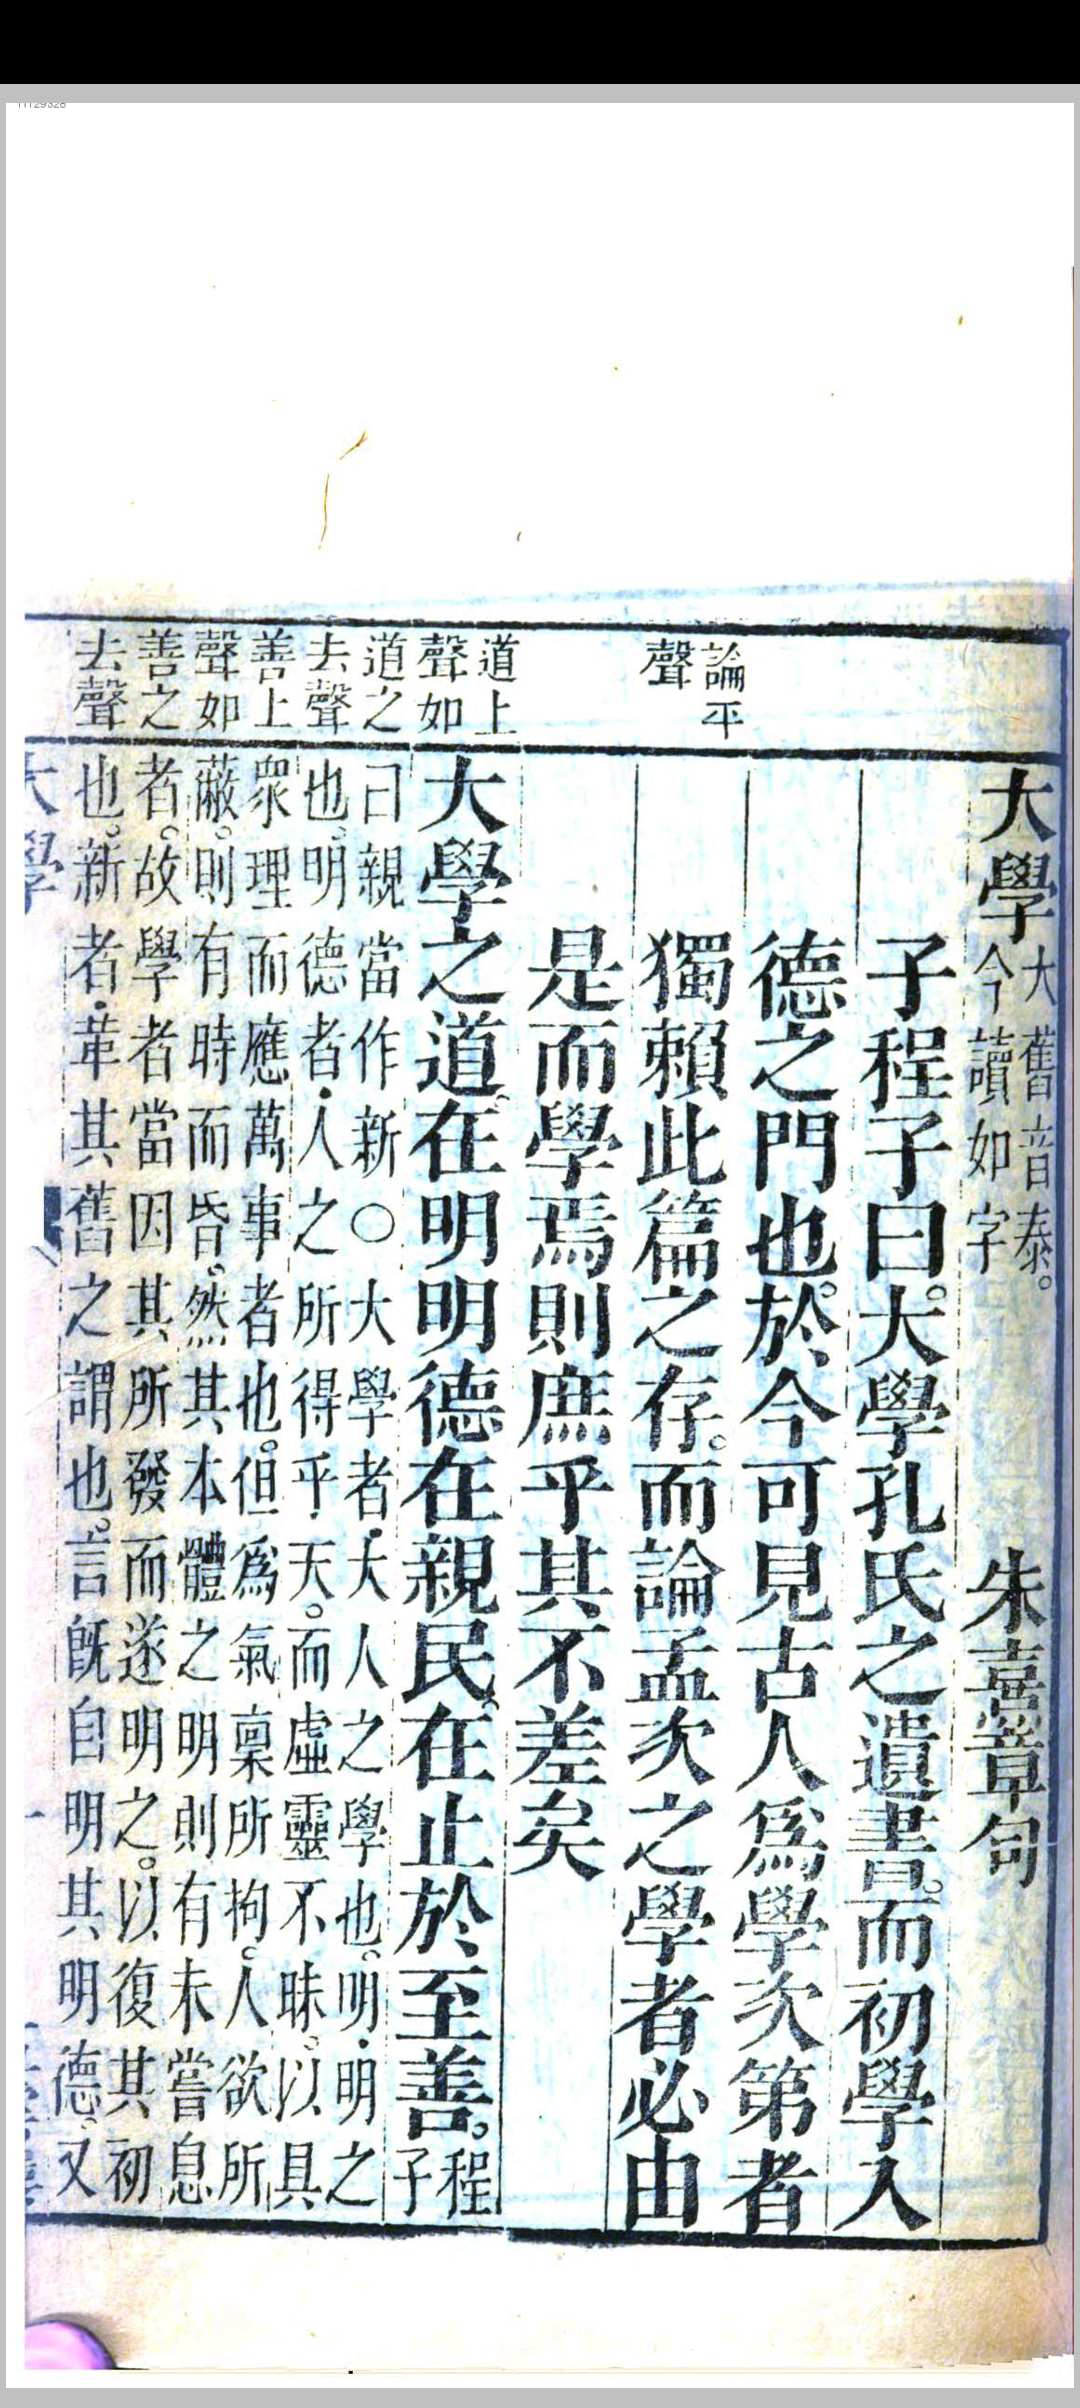 大學大舊音泰。今讀如字 朱熹章句
子程子曰。大學孔氏之遺書。而初學入
德之門也。於今可見古人爲學次第者
獨賴此篇之存。而論孟次之學者必由
是而學焉則庶乎其不差矣
大學之道。在明明德在親民。在止於至善。程子
曰親當作新○大學者。大人之學也。明。明之
也。明德者。人之所得乎天。而虛靈不昧。以具
衆理而應萬事者也。但爲氣稟所拘。人欲所
蔽。則有時而昏。然其本體之明則有未嘗息
者。故學者當因其所發而遂明之。以復其初
也。新者。革其舊之謂也。言旣自明其明德。又
論平
聲
道上
聲如
道之
去聲
善上
聲如
善之
去聲
大學